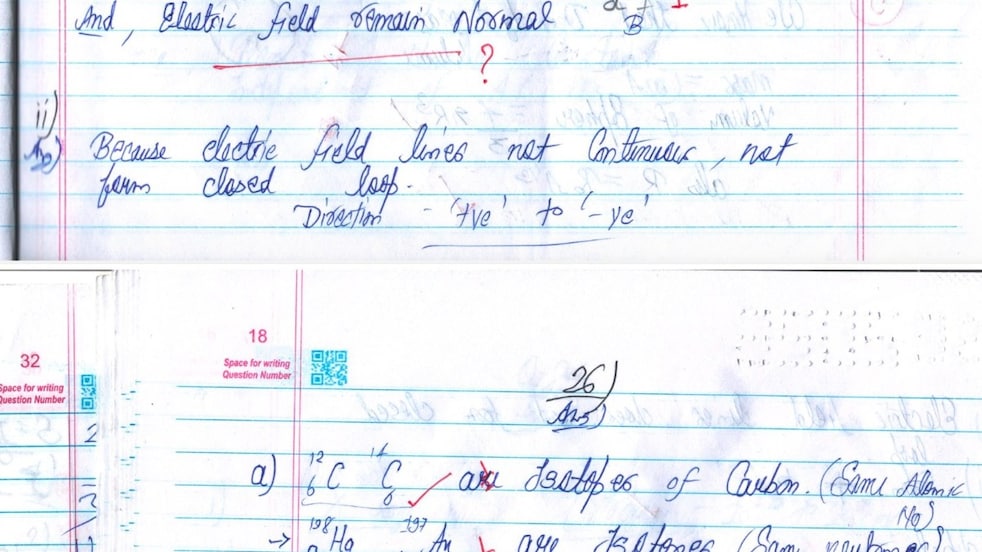 And, Electric field remain Normal
B
?
ii)
Because electric field lines not Continuous, not
form closed loop.
Direction - '+ve' to '-ve'
18
Space for writing
Question Number
32
Space for writing
Question Number
26)
Ans)
a) 12 6 C 14 6 C are Isotopes of Carbon. (Same Atomic
No)
→ 198 Hg 197 Au are Isotones (Same